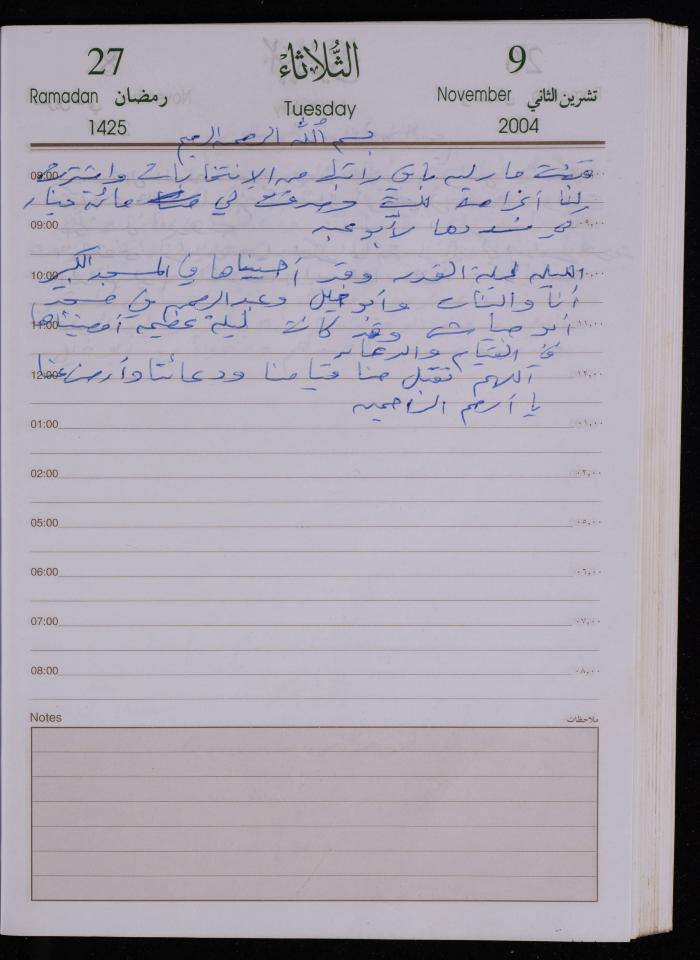 27 الثُّلاثاء 9
Ramadan رمضان Tuesday November تشرين الثاني
1425 2004
بسم الله الرحمن الرحيم
08:00 من الإنتخابات واشتريت
لنا أغراضا لي مائة دينار
09:00 ٠٩,٠٠
سددها لأبو
10:00 الليلة ليلة القدر وقد أحييناها في المسجد الكبير ١٠,٠٠
أنا والبنات وأبو خليل وعبد الرحمن في مسجد
11:00 أبو وقد كانت ليلة عظيمة أمضيناها ١١,٠٠
في القيام والدعاء
12:00 اللهم تقبل منا قيامنا ودعائنا وأرض عنا ١٢,٠٠
يا أرحم الراحمين
01:00 ٠١,٠٠
02:00 ٠٢,٠٠
05:00 ٠٥,٠٠
06:00 ٠٦,٠٠
07:00 ٠٧,٠٠
08:00 ٠٨,٠٠
Notes ملاحظات